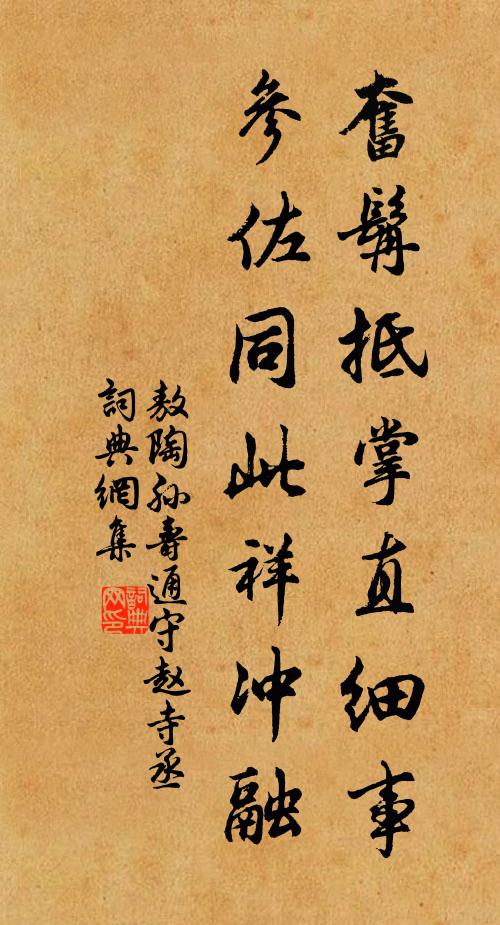 奮髯抵掌直細事
參佐同此祥冲融
敖陶孙壽通守赵寺丞
詞典網集
詞典網印